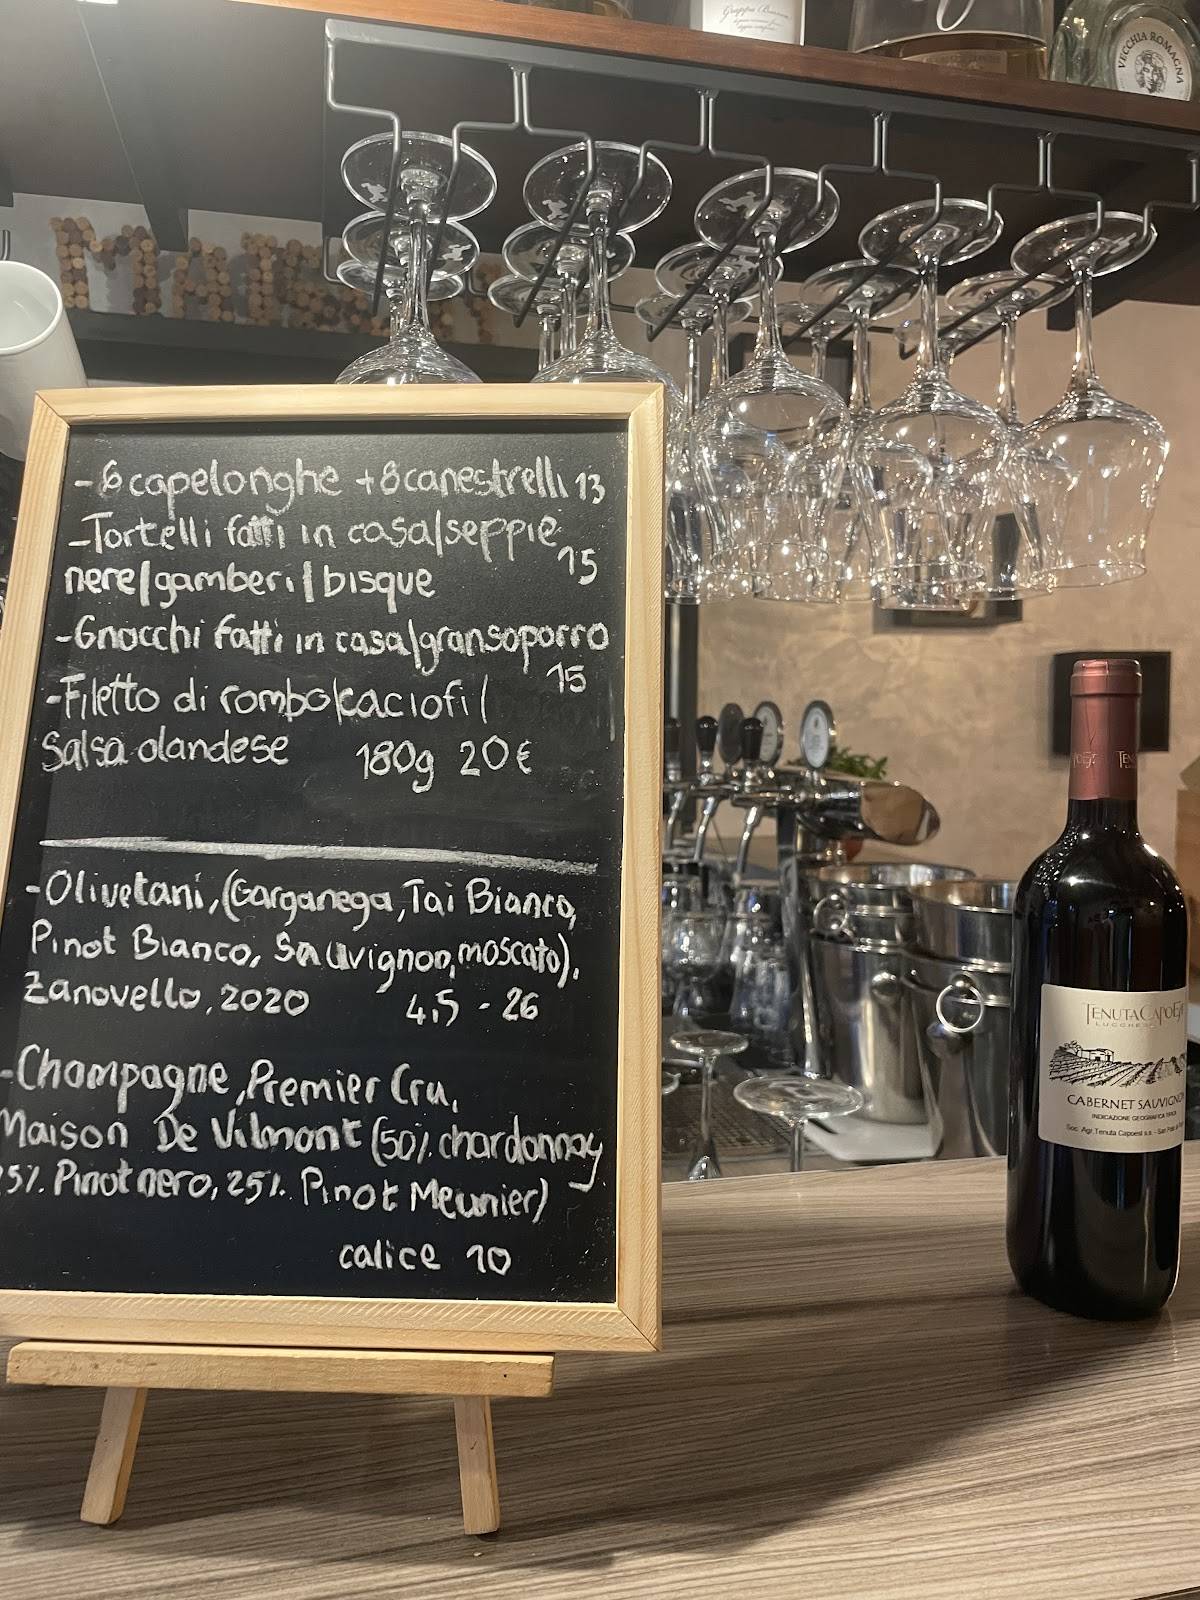 Grappa Bianca
VECCHIA ROMAGNA
- 6 capelonghe + 8 canestrelli 13
- Tortelli fatti in casa/seppie
nere/gamberi/bisque 15
- Gnocchi fatti in casa/gransoporro
15
- Filetto di rombo/caciofi/
Salsa olandese 180g 20€
- Olivetani, (Garganega, Tai Bianco,
Pinot Bianco, Sauvignon, moscato),
Zanovello, 2020 4,5 - 26
- Champagne, Premier Cru,
Maison De Vilmont (50% chardonnay,
25% Pinot nero, 25% Pinot Meunier)
calice 10
TENUTA CAPOESI
LUCCHESI
CABERNET SAUVIGNON
INDICAZIONE GEOGRAFICA TIPICA
Soc. Agr. Tenuta Capoesi s.s. - San Polo